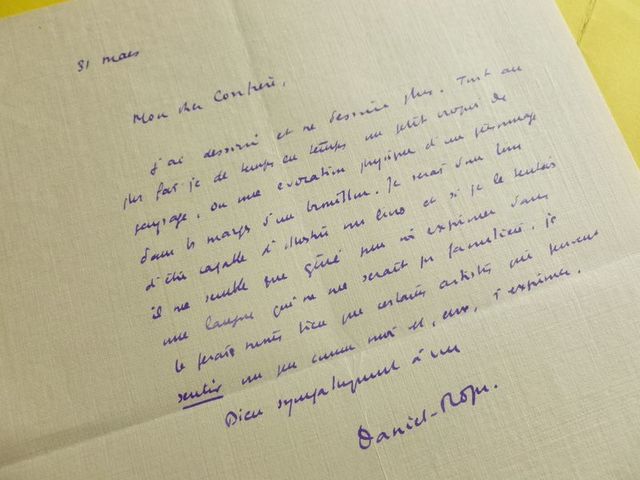 31 mars
Mon cher Confrère,
J'ai dessiné et ne dessine plus. Tout au
plus fais-je de temps en temps un petit croquis de
paysage, ou une évocation physique d'un personnage
dans la marge d'un brouillon. Je serais d'un bon
d'être capable d'illustrer un livre et si je le tentais
il me semble que gêné pour m'exprimer dans
une langue qui ne me serait pas familière, je
le ferais moins bien que certains artistes qui peuvent
sentir un peu comme moi et, eux, s'exprimer.
Bien sympathiquement à vous
Daniel-Rops.